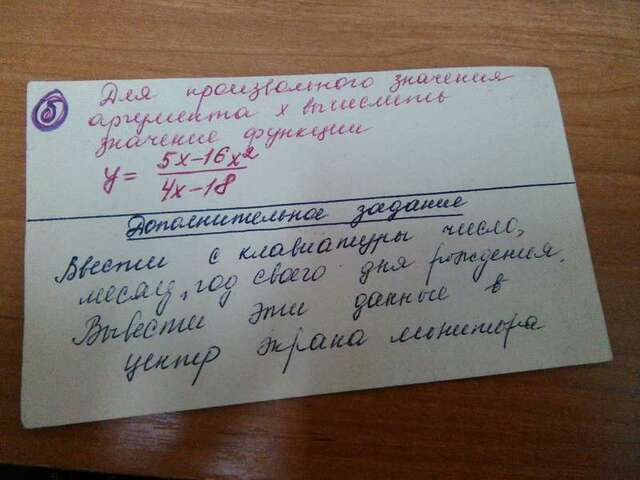 5
Для произвольного значения
аргумента х вычислить
значение функции
y = 5x-16x²
4x-18
Дополнительное задание
Ввести с клавиатуры число,
месяц, год своего дня рождения.
Вывести эти данные в
центр экрана монитора